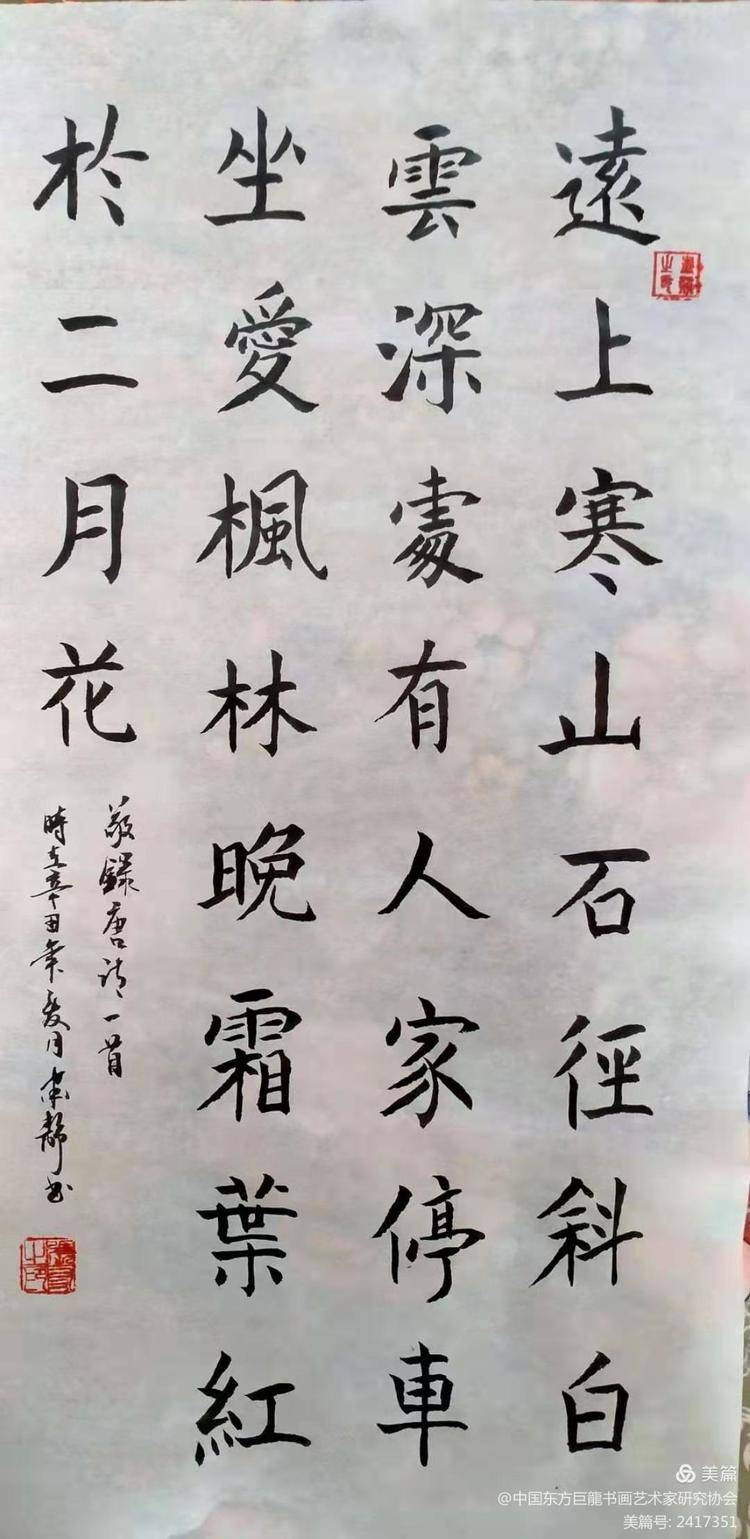 遠上寒山石徑斜白
雲深處有人家停車
坐愛楓林晚霜葉紅
於二月花
敬錄唐詩一首
時在辛丑年夏月 静书
美篇
@中国东方巨龍书画艺术家研究协会
美篇号: 2417351